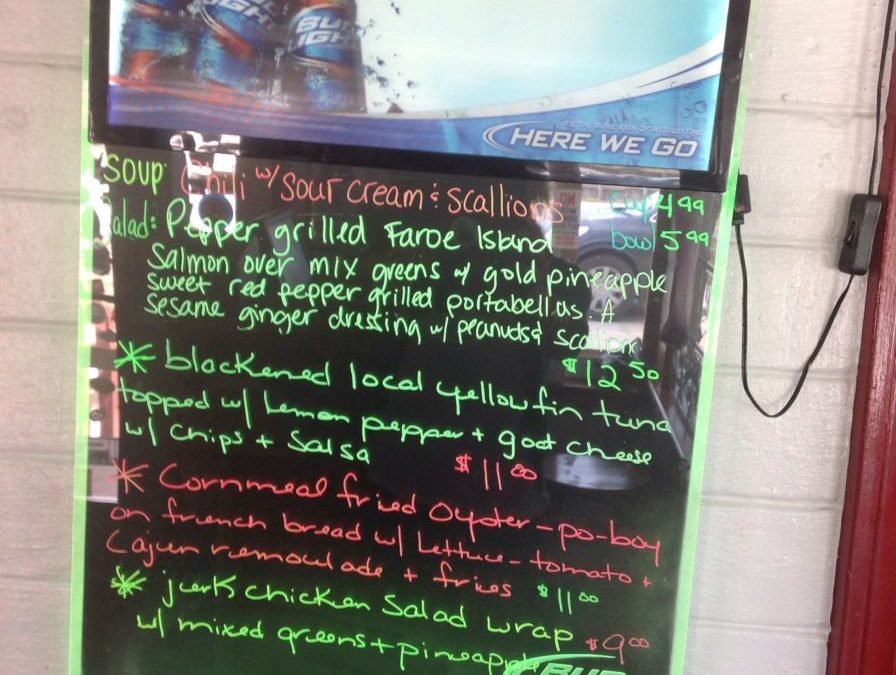 BUD LIGHT
IT'S THE SURE SIGN OF A GOOD TIME
HERE WE GO
Soup Chili w/ Sour Cream & Scallions cup 4 99
Salad: Pepper grilled Faroe Island bowl 5 99
Salmon over mix greens w/ gold pineapple
sweet red pepper grilled portabellas. A
sesame ginger dressing w/ peanuts & scallions
$12 50
* blackened local yellowfin tuna
topped w/ Lemon pepper + goat cheese
w/ chips + Salsa $11 00
* Cornmeal fried oyster-po-boy
on french bread w/ Lettuce-tomato +
Cajun remoulade + fries $11 00
* jerk chicken Salad wrap $9 00
w/ mixed greens + pineapple
BUD